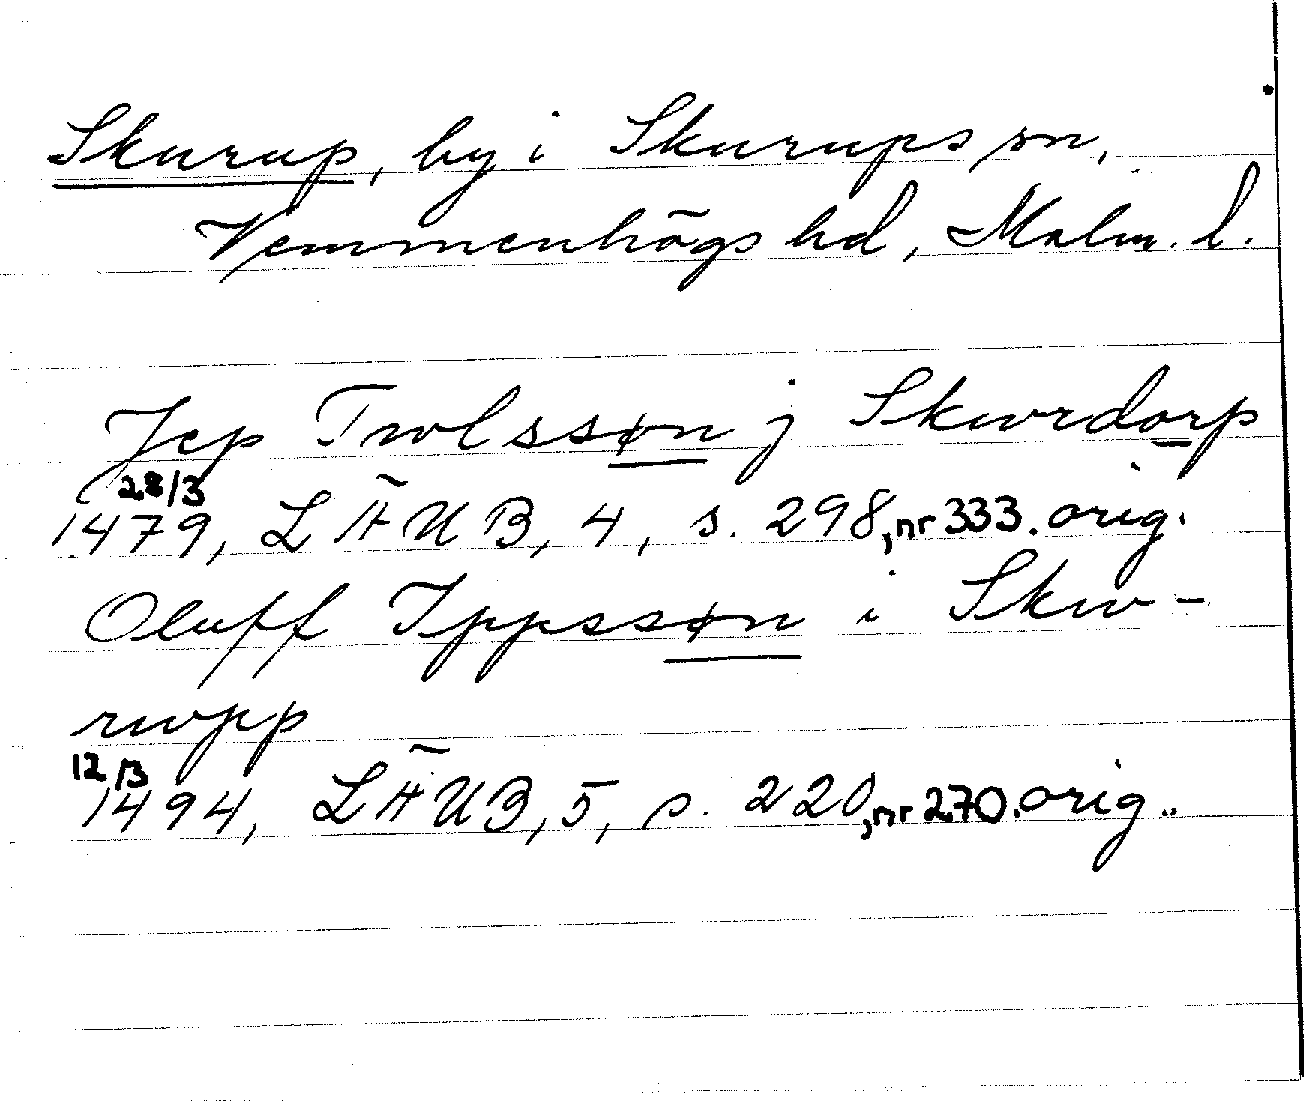 Skurup, by i Skurups sn,
Vemmenhögs hd, Malm. l.
Jep Trwlssøn j Skwrdorp
28/3
1479, LÄUB, 4, s. 298, nr 333. orig.
Oluff Ippssøn i Skw-
rwpp
12/3
1494, LÄUB, 5, s. 220, nr 270. orig..